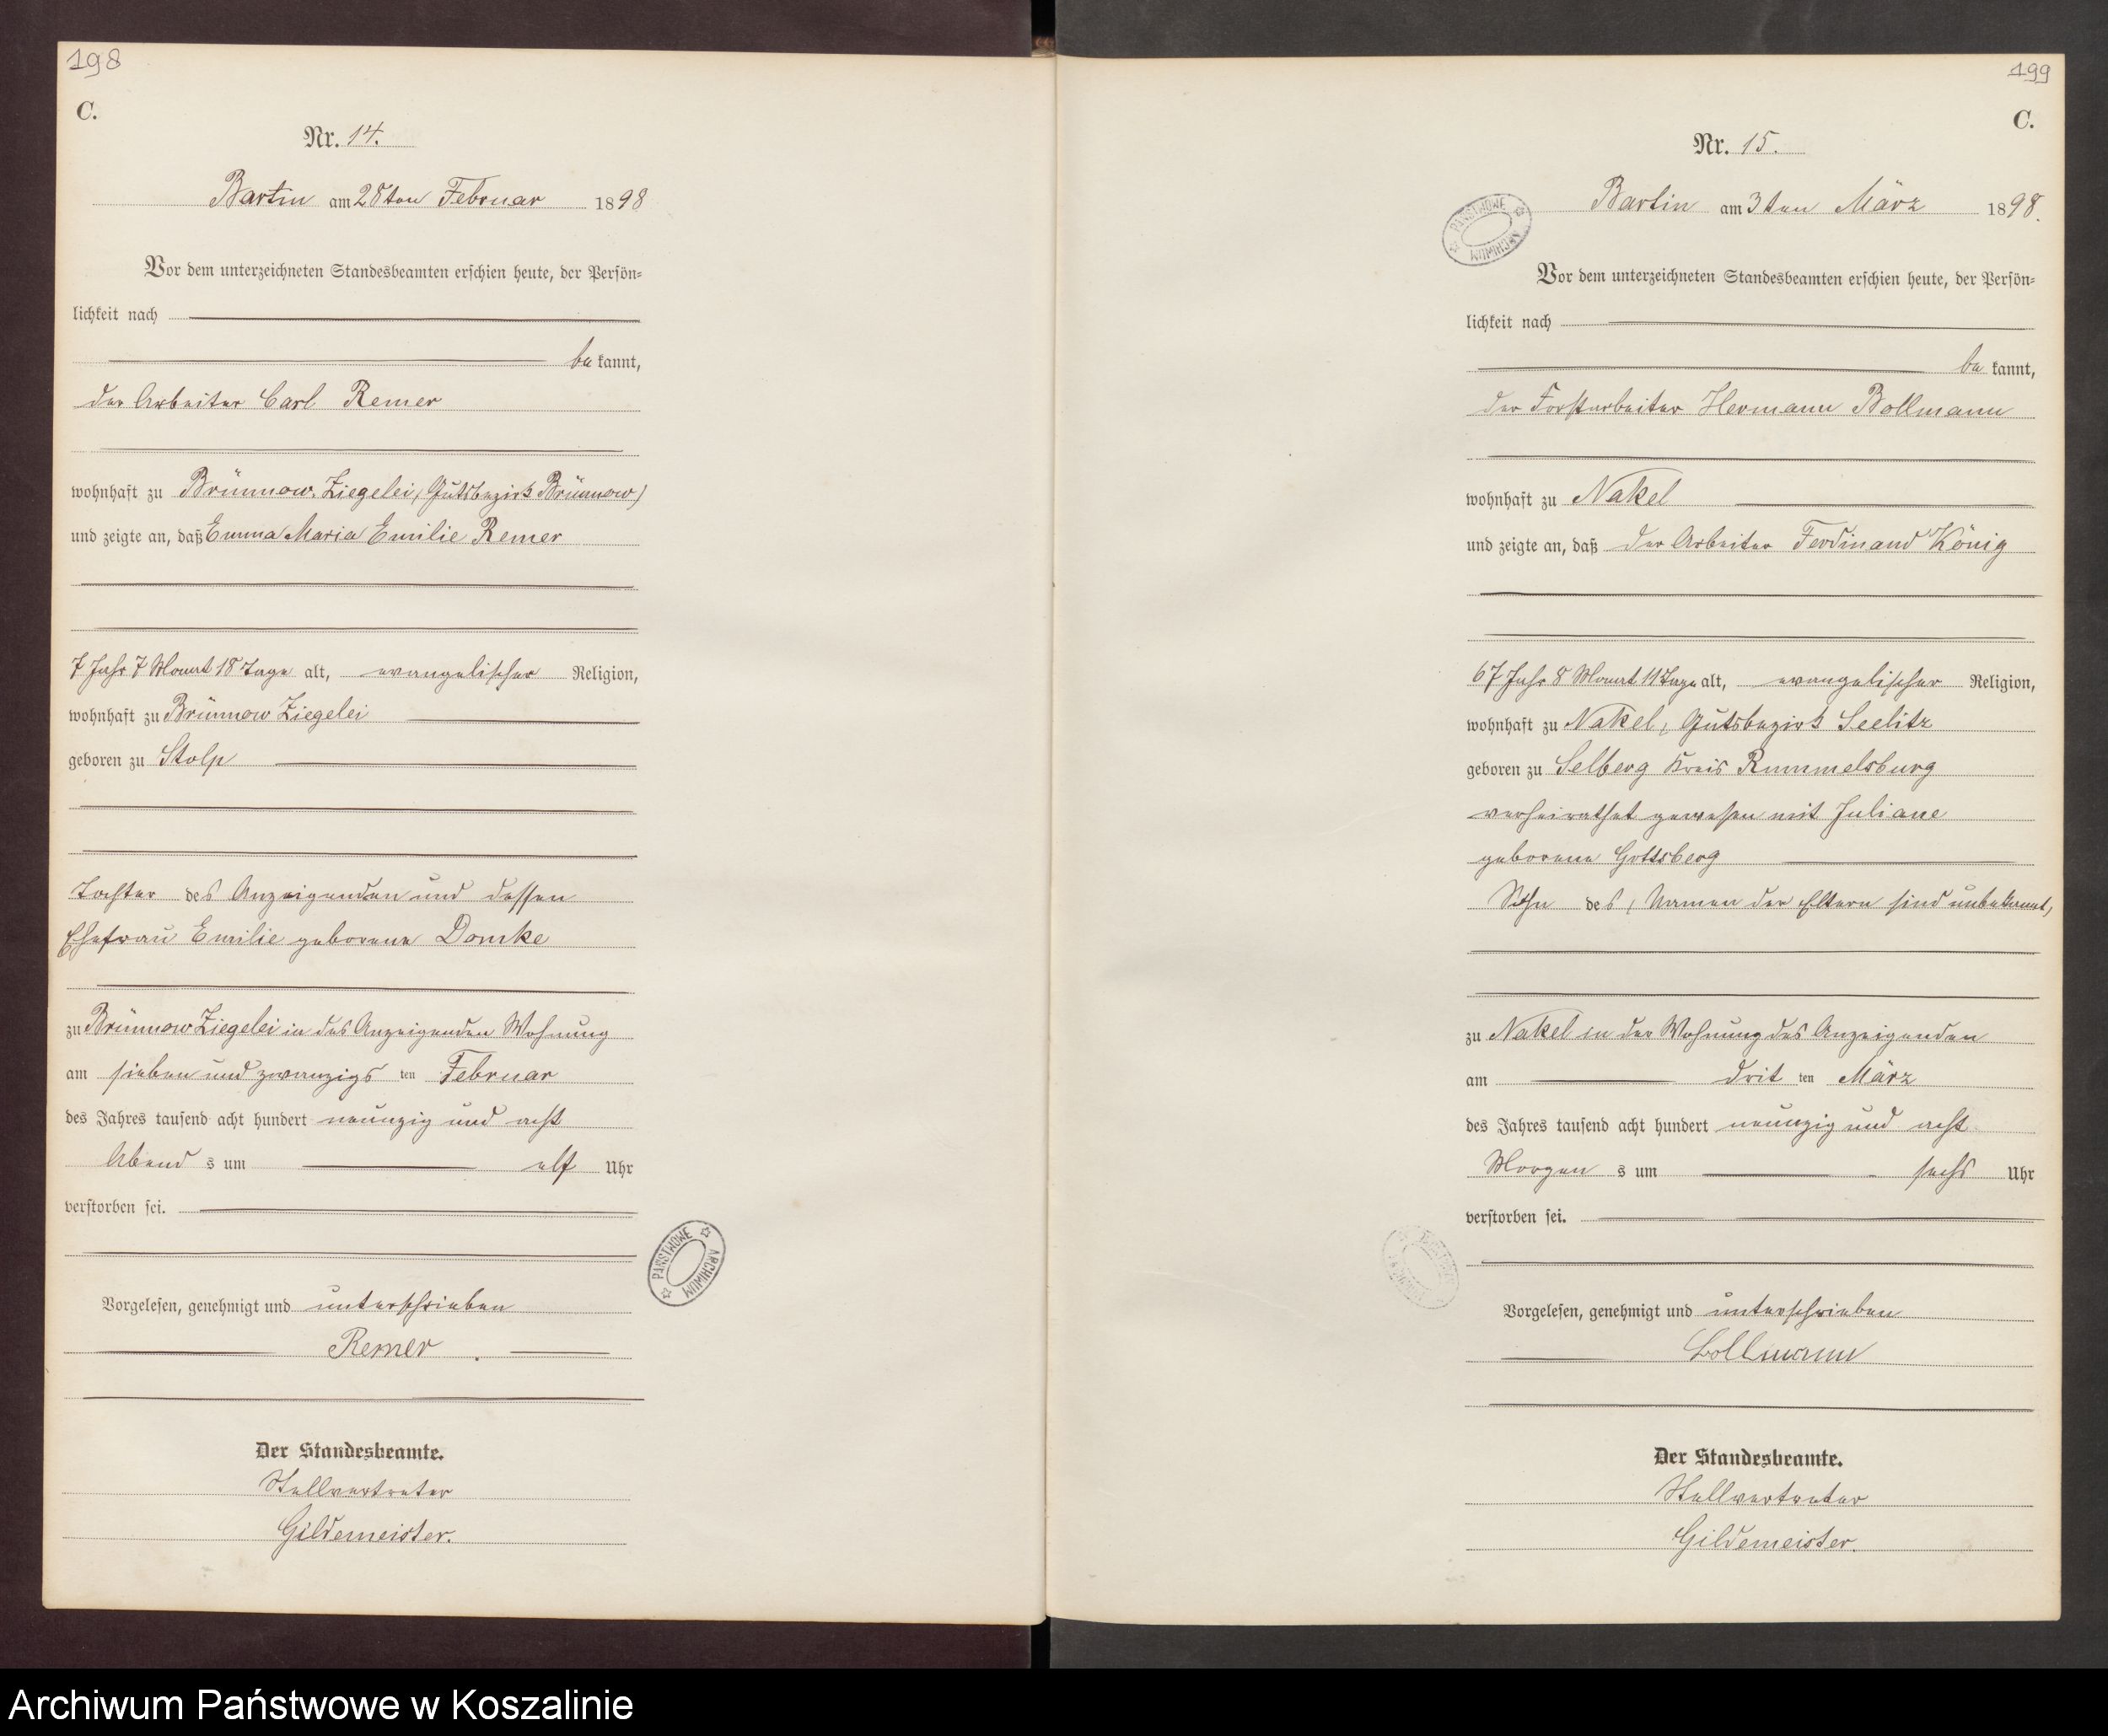 198
C.
Nr. 14.
Bartin am 28ten Februar 1898
Vor dem unterzeichneten Standesbeamten erschien heute, der Persön-
lichkeit nach
bekannt,
der Arbeiter Carl Remer
wohnhaft zu Brünnow, Ziegelei, (Gutsbezirk Brünnow)
und zeigte an, daß Emma Maria Emilie Remer
7 Jahr 7 Monat 18 Tage alt, evangelischer Religion,
wohnhaft zu Brünnow Ziegelei
geboren zu Stolp
Tochter des Anzeigenden und dessen
Ehefrau Emilie geborene Domke
zu Brünnow Ziegelei in des Anzeigenden Wohnung
am sieben und zwanzigsten Februar
des Jahres tausend acht hundert neunzig und acht
Abends um elf Uhr
verstorben sei.
Vorgelesen, genehmigt und unterschrieben
Remer.
Der Standesbeamte.
Stellvertreter
Gildemeister.
PAŃSTWOWE ARCHIWUM
199
C.
Nr. 15.
Bartin am 3ten März 1898.
PAŃSTWOWE ARCHIWUM
Vor dem unterzeichneten Standesbeamten erschien heute, der Persön-
lichkeit nach
bekannt,
der Forstarbeiter Hermann Bollmann
wohnhaft zu Nakel
und zeigte an, daß der Arbeiter Ferdinand König
67 Jahr 8 Monat 11 Tage alt, evangelischer Religion,
wohnhaft zu Nakel, Gutsbezirk Seelitz
geboren zu Selberg Kreis Rummelsburg
verheirathet gewesen mit Juliane
geborene Gottsberg
Sohn des, Namen der Eltern sind unbekannt,
zu Nakel in der Wohnung des Anzeigenden
am dritten März
des Jahres tausend acht hundert neunzig und acht
Morgens um sechs Uhr
verstorben sei.
Vorgelesen, genehmigt und unterschrieben
Bollmann
Der Standesbeamte.
Stellvertreter
Gildemeister.
Archiwum Państwowe w Koszalinie